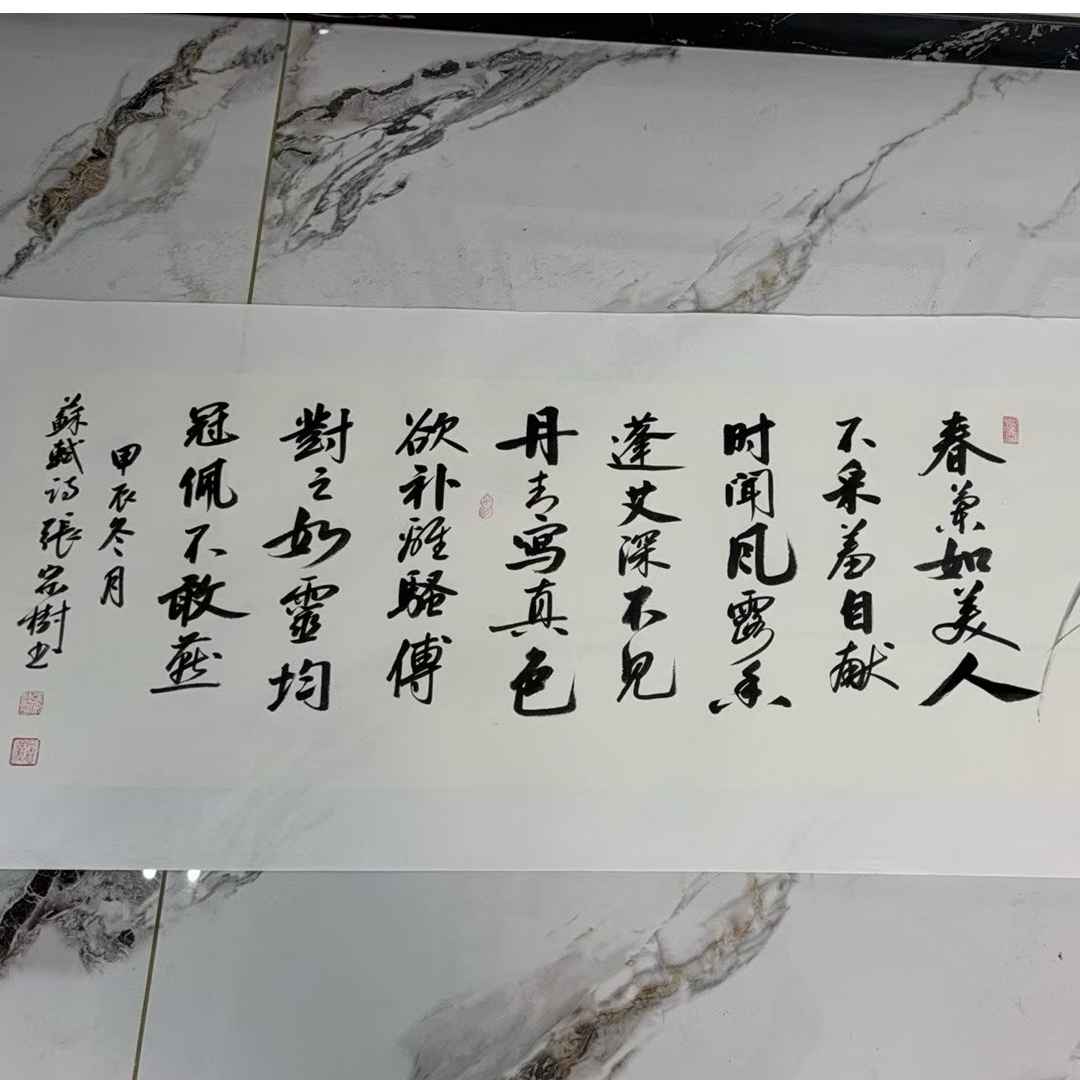 春蘭如美人
不采羞自献
时闻风露香
蓬艾深不見
丹青寫真色
欲补離騷傳
對之如靈均
冠佩不敢燕
甲辰冬月
蘇軾詩張樹书